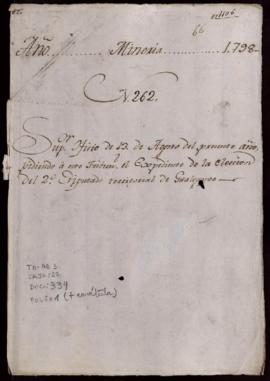 66
Año. Mineria 1,798
N. 262.
Sup.or Ofício de 13. de Agosto del presente año,
pidiendo á este Tribun.l el Expediente de la eleccion
del 2.o Diputado territorial de Gualgayoc
TM-AR 3
CAJA: 22
DOC: 334
FOLIO 1 (+ carátula)